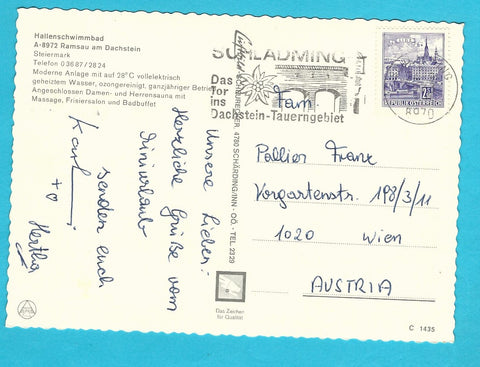 Hallenschwimmbad
A-8972 Ramsau am Dachstein
Steiermark
Telefon 03687/2824
Moderne Anlage mit auf 28°C vollelektrisch
geheiztem Wasser, ozongereinigt, ganzjähriger Betrieb
Angeschlossen Damen- und Herrensauna mit
Massage, Frisiersalon und Badbuffet
Unsere Lieben!
Herzliche Grüße vom
Miniurlaub
senden euch
Karl
+
Hertha
4780 SCHÄRDING/INN - OÖ. - TEL. 2329
Das Zeichen
für Qualität
SCHLADMING
Das
Tor
ins
Dachstein-Tauerngebiet
8970
REPUBLIK ÖSTERREICH
Fam.
Pallier Franz
Vorgartenstr. 198/3/11
1020 Wien
AUSTRIA
C 1435